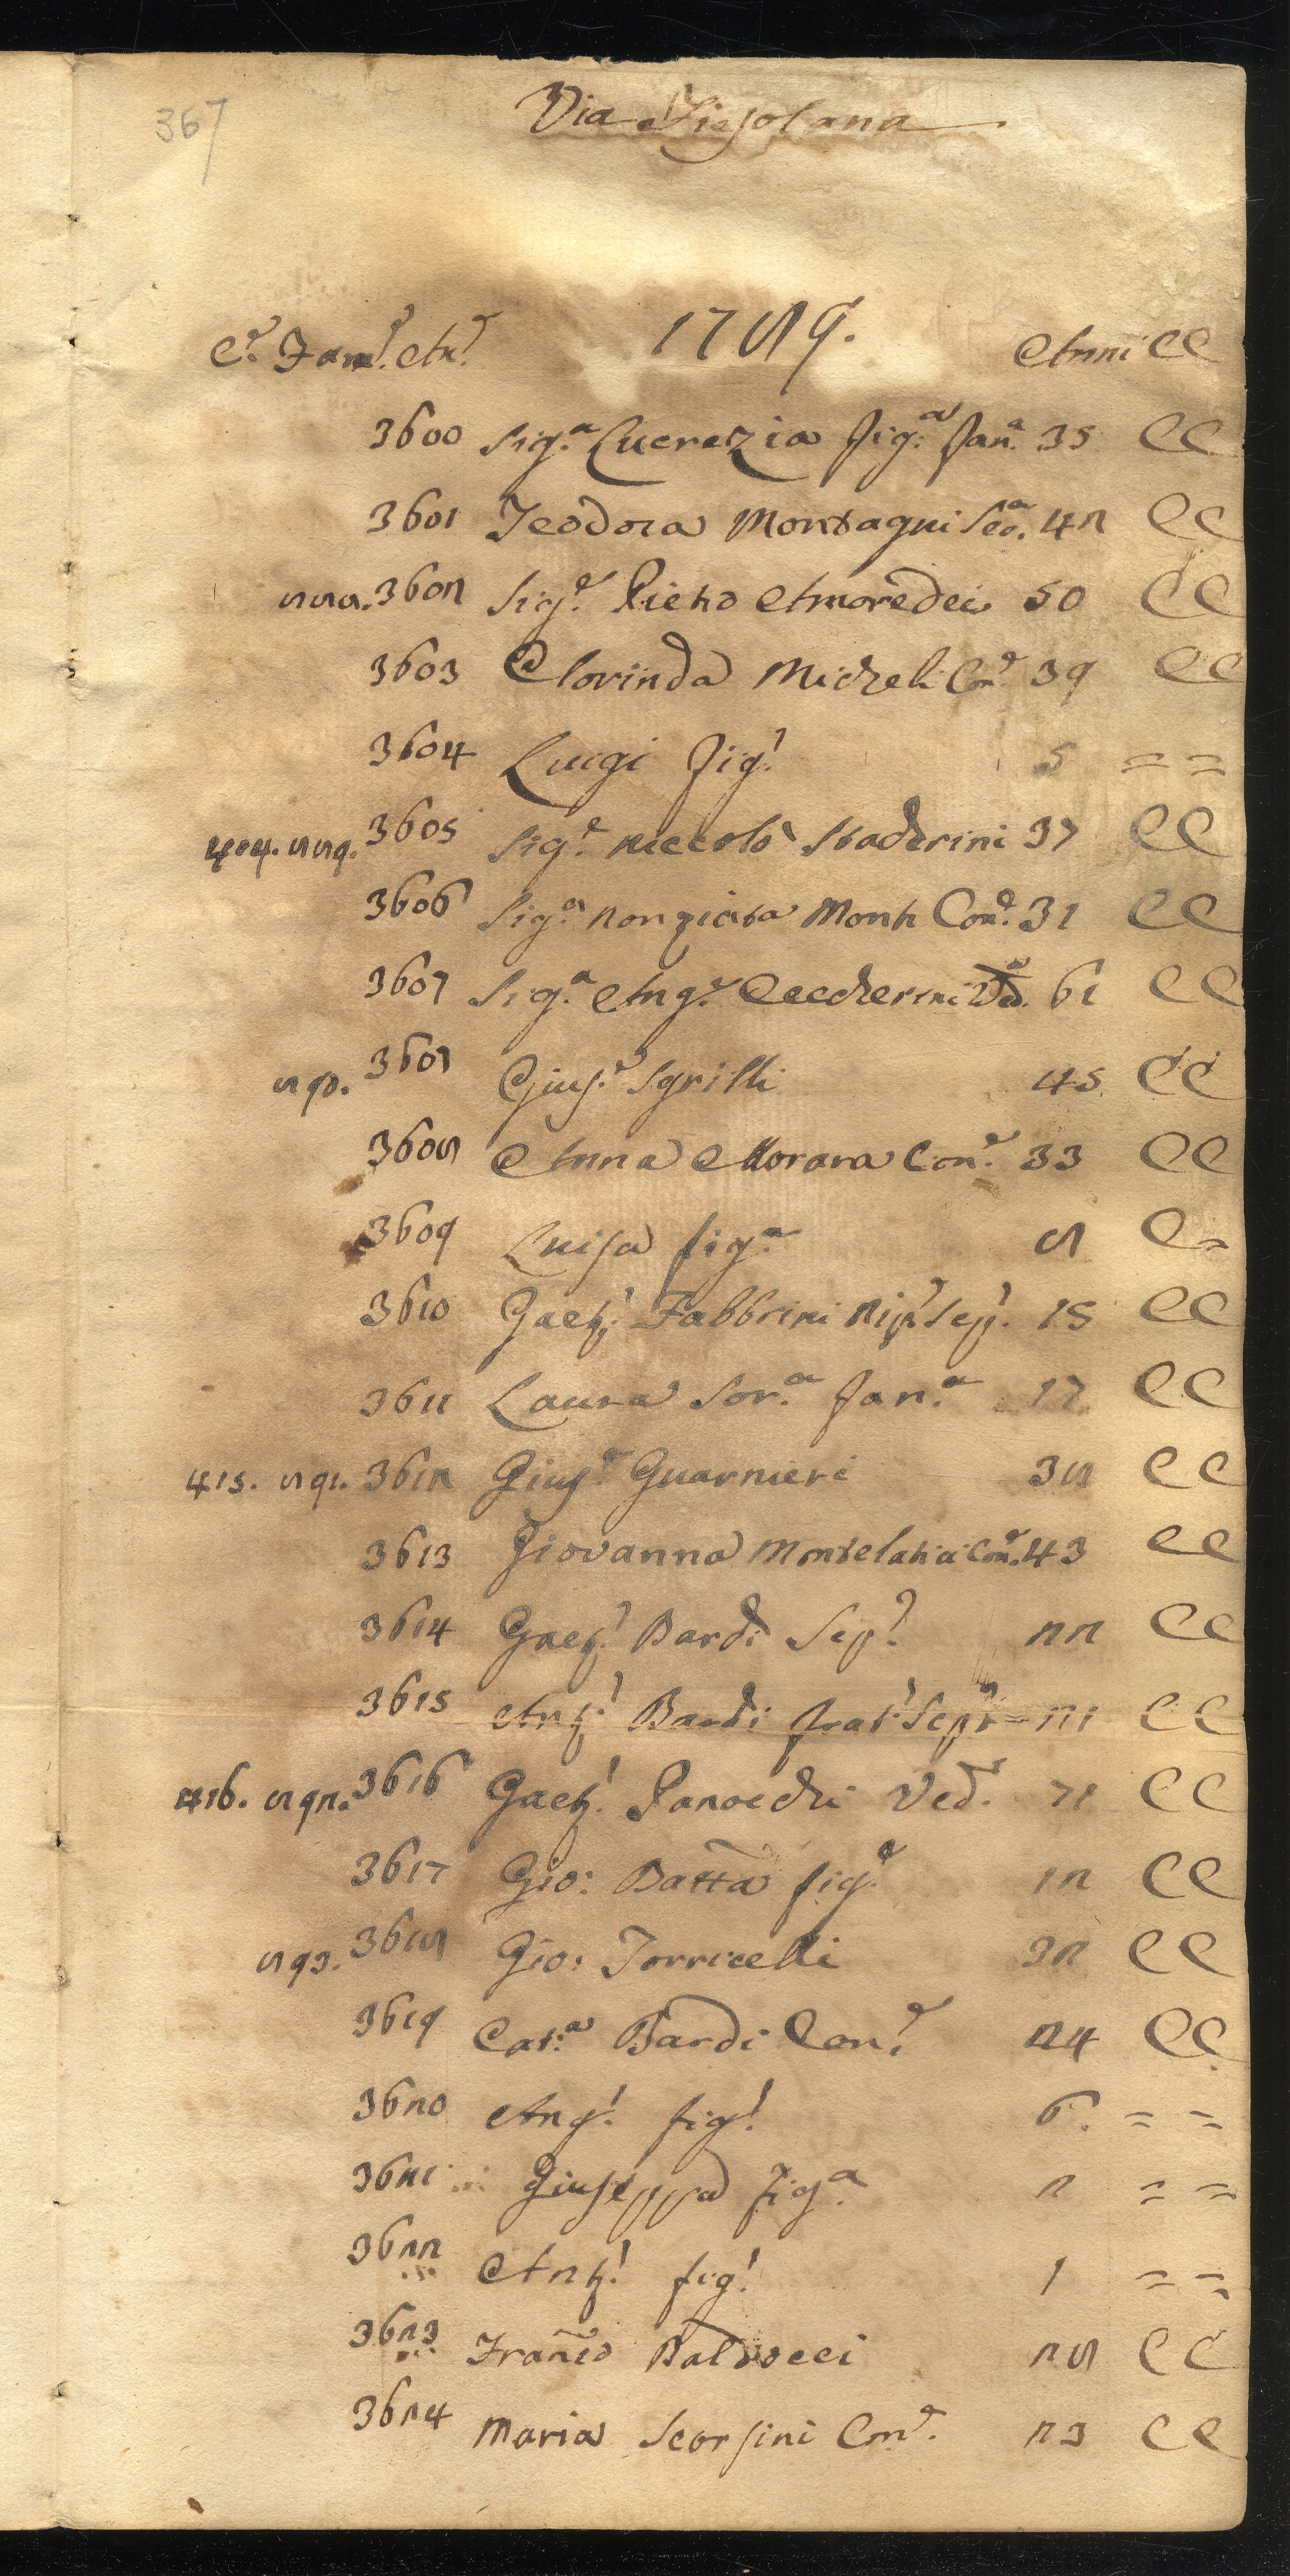 367
Via Fiesolana
C.e Fam.e An.e 1789. Anni CC
3600 Sig.a Lucrezia fig.a fan.a 35 CC
3601 Teodora Montagni Sea. 42 CC
888. 3602 Sig.e Pietro Amoredei 50 CC
3603 Clorinda Micheli Con.e 39 CC
3604 Luigi fig.o 5 = =
404. 889. 3605 Sig.e Niccolò Staderini 37 CC
3606 Sig.a Nonziata Monti Con.e 31 CC
3607 Sig.a Ang.a Ceccherini Ved.a 61 CC
890. 3607 Gius.e Sgrilli 45 CC
3608 Anna Morara Con.e 33 CC
3609 Luisa fig.a 8 C =
3610 Gaet.o Fabbrini Nip.e Sep.o 15 CC
3611 Laura Sor.a fan.a 17 CC
415. 891. 3612 Gius.e Guarnieri 38 CC
3613 Giovanna Montelatici Con.e 43 CC
3614 Gaet.o Bardi Sep.o 22 CC
3615 Ant.o Bardi frat.o Sep.o 21 CC
416. 892. 3616 Gaet.o Panocchi Ved.o 71 CC
3617 Gio: Batta fig.o 12 CC
893. 3618 Gio: Torricelli 32 CC
3619 Cat.a Bardi Con.e 24 CC
3620 Ang.o fig.o 6 = =
3621 Giuseppa fig.a 2 = =
3622 Ant.o fig.o 1 = =
3623 Franc̃o Balducci 28 CC
3624 Maria Scorsini Con.e 23 CC